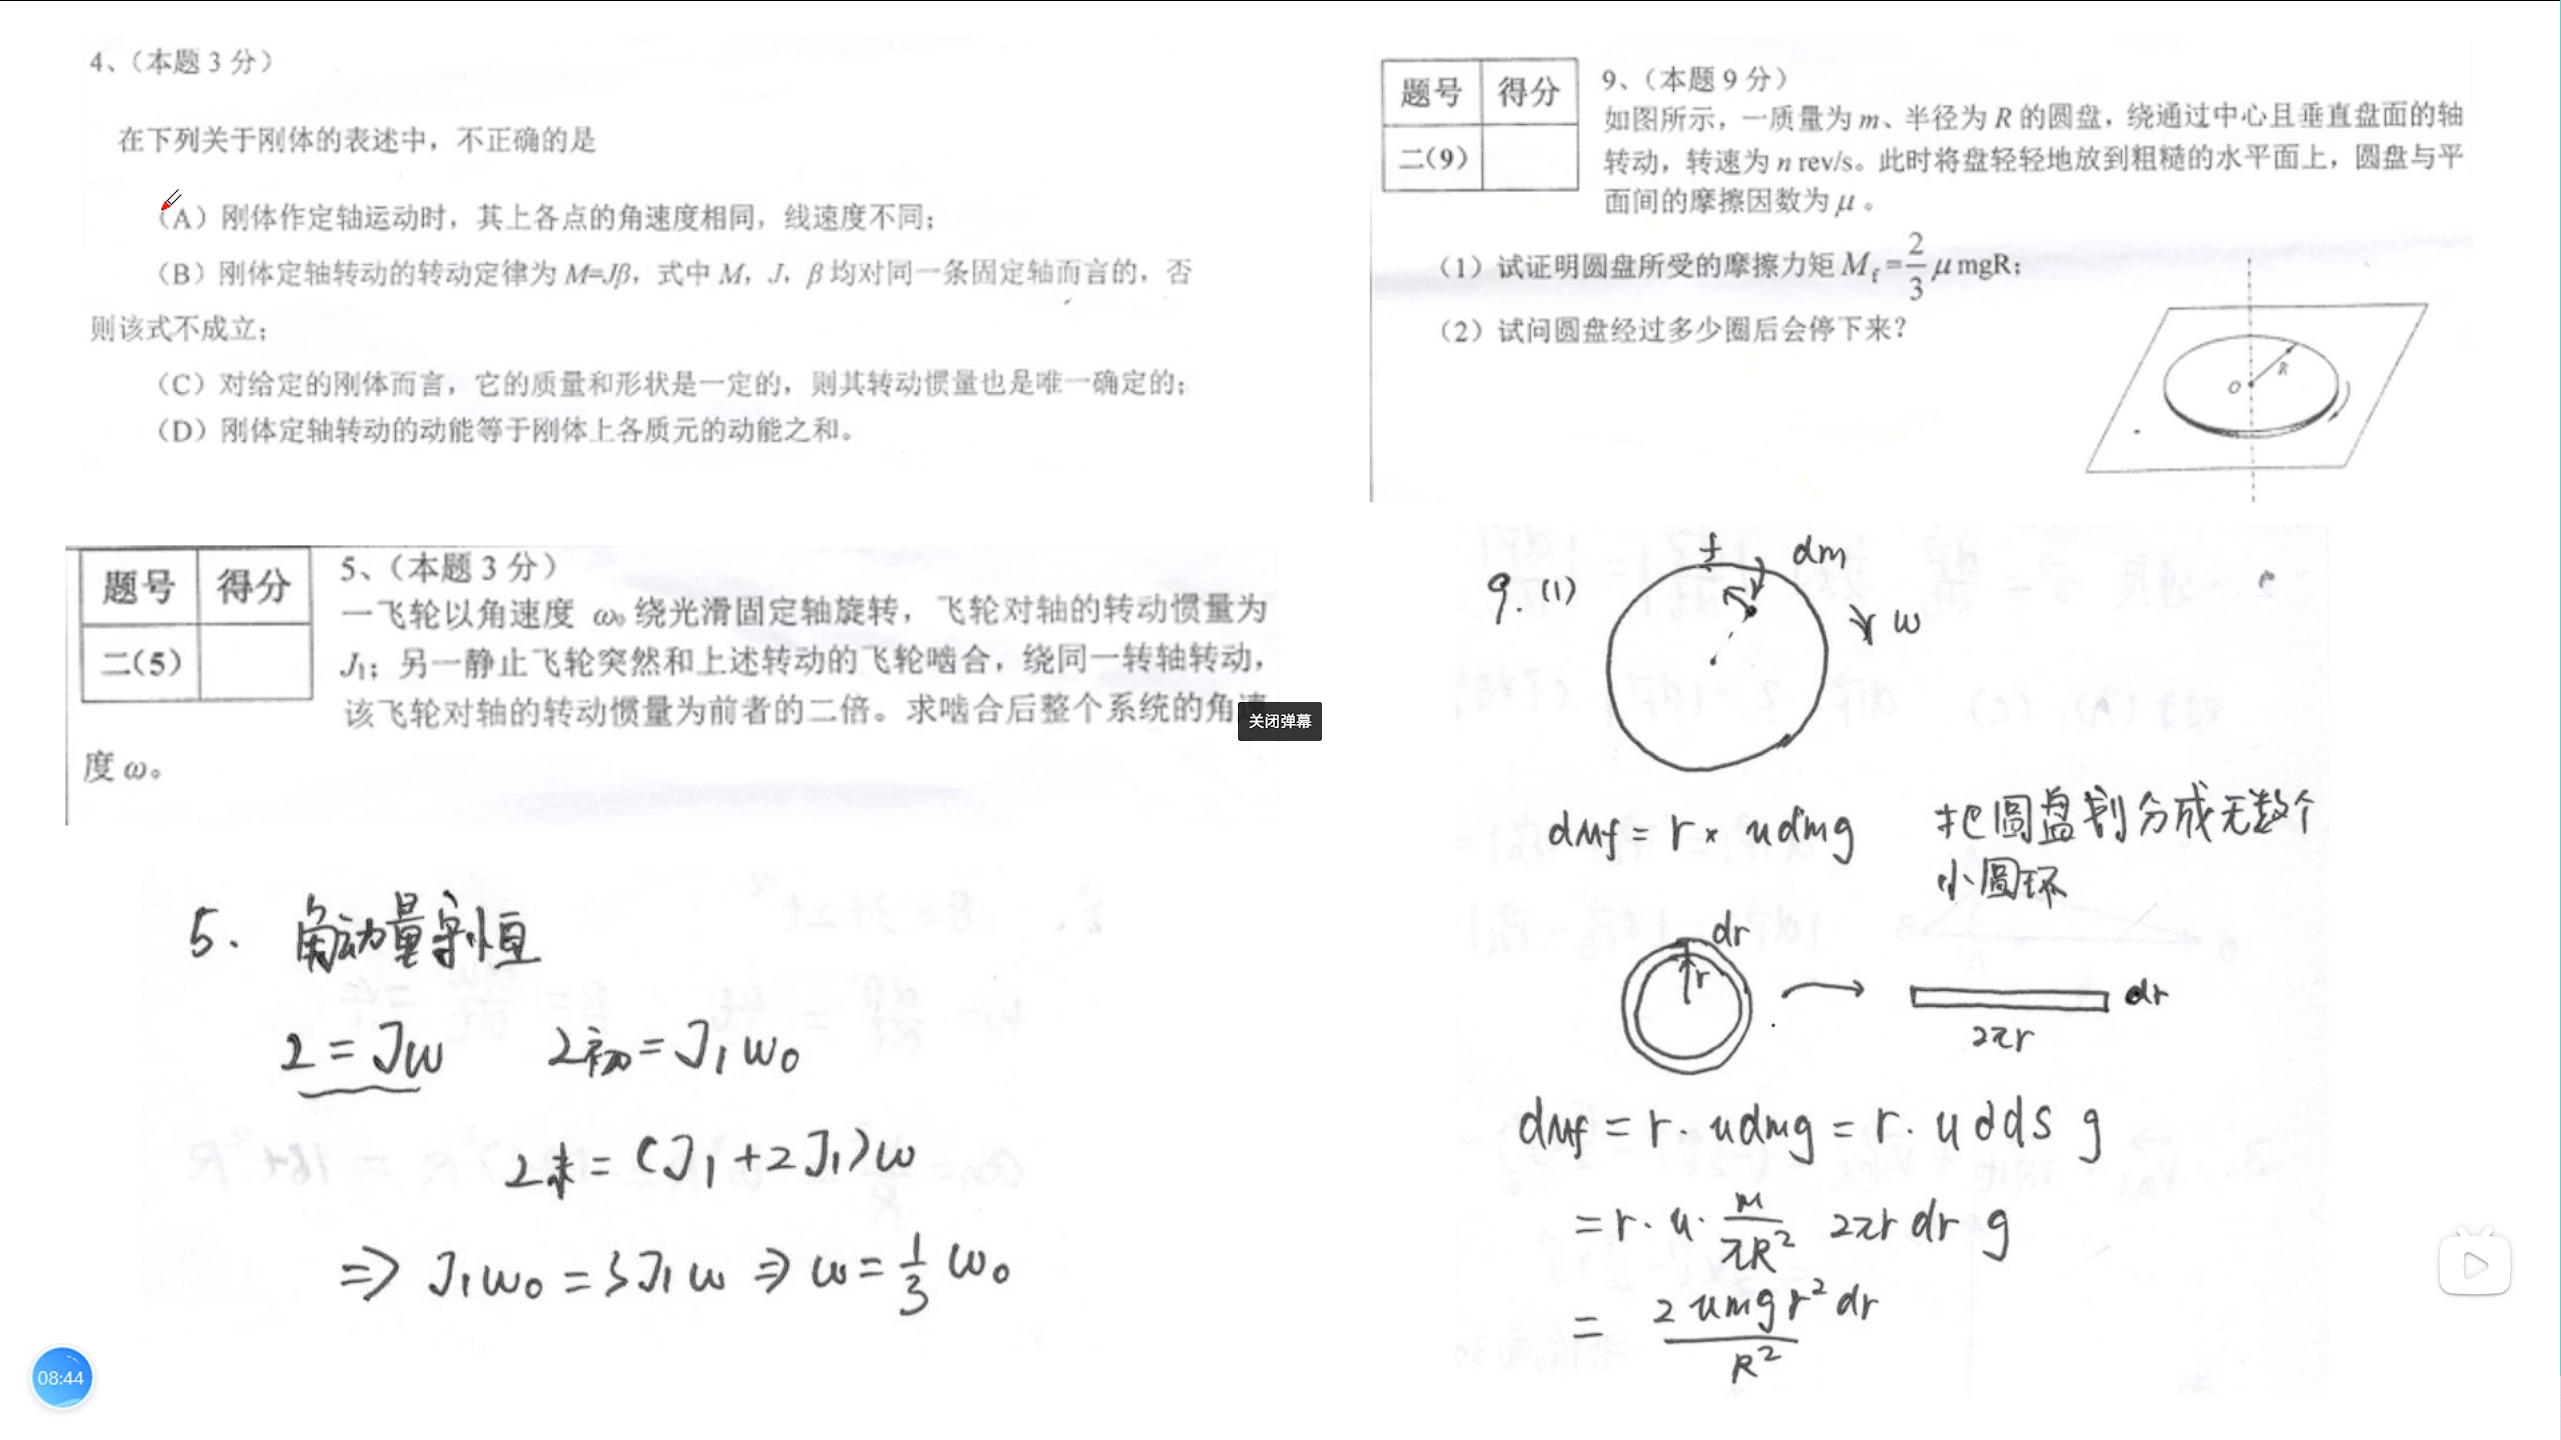 4、（本题 3 分）
在下列关于刚体的表述中，不正确的是
（A）刚体作定轴运动时，其上各点的角速度相同，线速度不同；
（B）刚体定轴转动的转动定律为 M=Jβ，式中 M，J，β 均对同一条固定轴而言的，否
则该式不成立；
（C）对给定的刚体而言，它的质量和形状是一定的，则其转动惯量也是唯一确定的；
（D）刚体定轴转动的动能等于刚体上各质元的动能之和。
题号 得分
二(5)
5、（本题 3 分）
一飞轮以角速度 ω₀ 绕光滑固定轴旋转，飞轮对轴的转动惯量为
J₁；另一静止飞轮突然和上述转动的飞轮啮合，绕同一转轴转动，
该飞轮对轴的转动惯量为前者的二倍。求啮合后整个系统的角速
度 ω。
关闭弹幕
5. 角动量守恒
L = Jω L初 = J₁ω₀
L末 = (J₁+2J₁)ω
⇒ J₁ω₀ = 3J₁ω ⇒ ω = 1/3 ω₀
08:44
题号 得分
二(9)
9、（本题 9 分）
如图所示，一质量为 m、半径为 R 的圆盘，绕通过中心且垂直盘面的轴
转动，转速为 n rev/s。此时将盘轻轻地放到粗糙的水平面上，圆盘与平
面间的摩擦因数为 μ 。
（1）试证明圆盘所受的摩擦力矩 M f = 2/3 μ mgR；
（2）试问圆盘经过多少圈后会停下来？
O R
9. (1) f dm
ω
dMf = r × udmg 把圆盘划分成无数个
小圆环
dr
r
dr
2πr
dMf = r · udmg = r · u σds g
= r · u · m/πR² 2πr dr g
= 2umgr²dr/R²